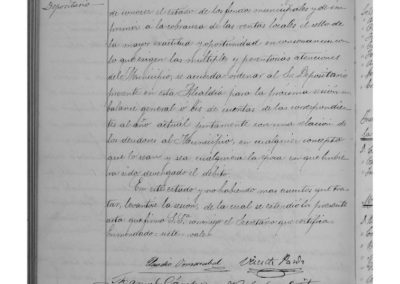 Depositario
de conocer el estado de los fondos municipales y de im-
primir a la cobranza de las rentas locales el sello de
la mayor exactitud y oportunidad en consonancia con
lo que exigen las múltiples y perentorias atenciones
del Municipio, se acuerda ordenar al Sr. Depositario
presente en esta Alcaldía para la próxima sesión un
balance general de cuentas de las correspondien-
tes al año actual juntamente con una relación de
los deudores al Municipio, en cualquier concepto
que lo sean y sea cualquiera la época en que hubie-
ra sido devengado el débito.
En este estado y no habiendo mas asuntos que tra-
tar, levantóse la sesión, de la cual se extendió la presente
acta que firma S.S. conmigo el Secretario que certifica
Enmendado = vale